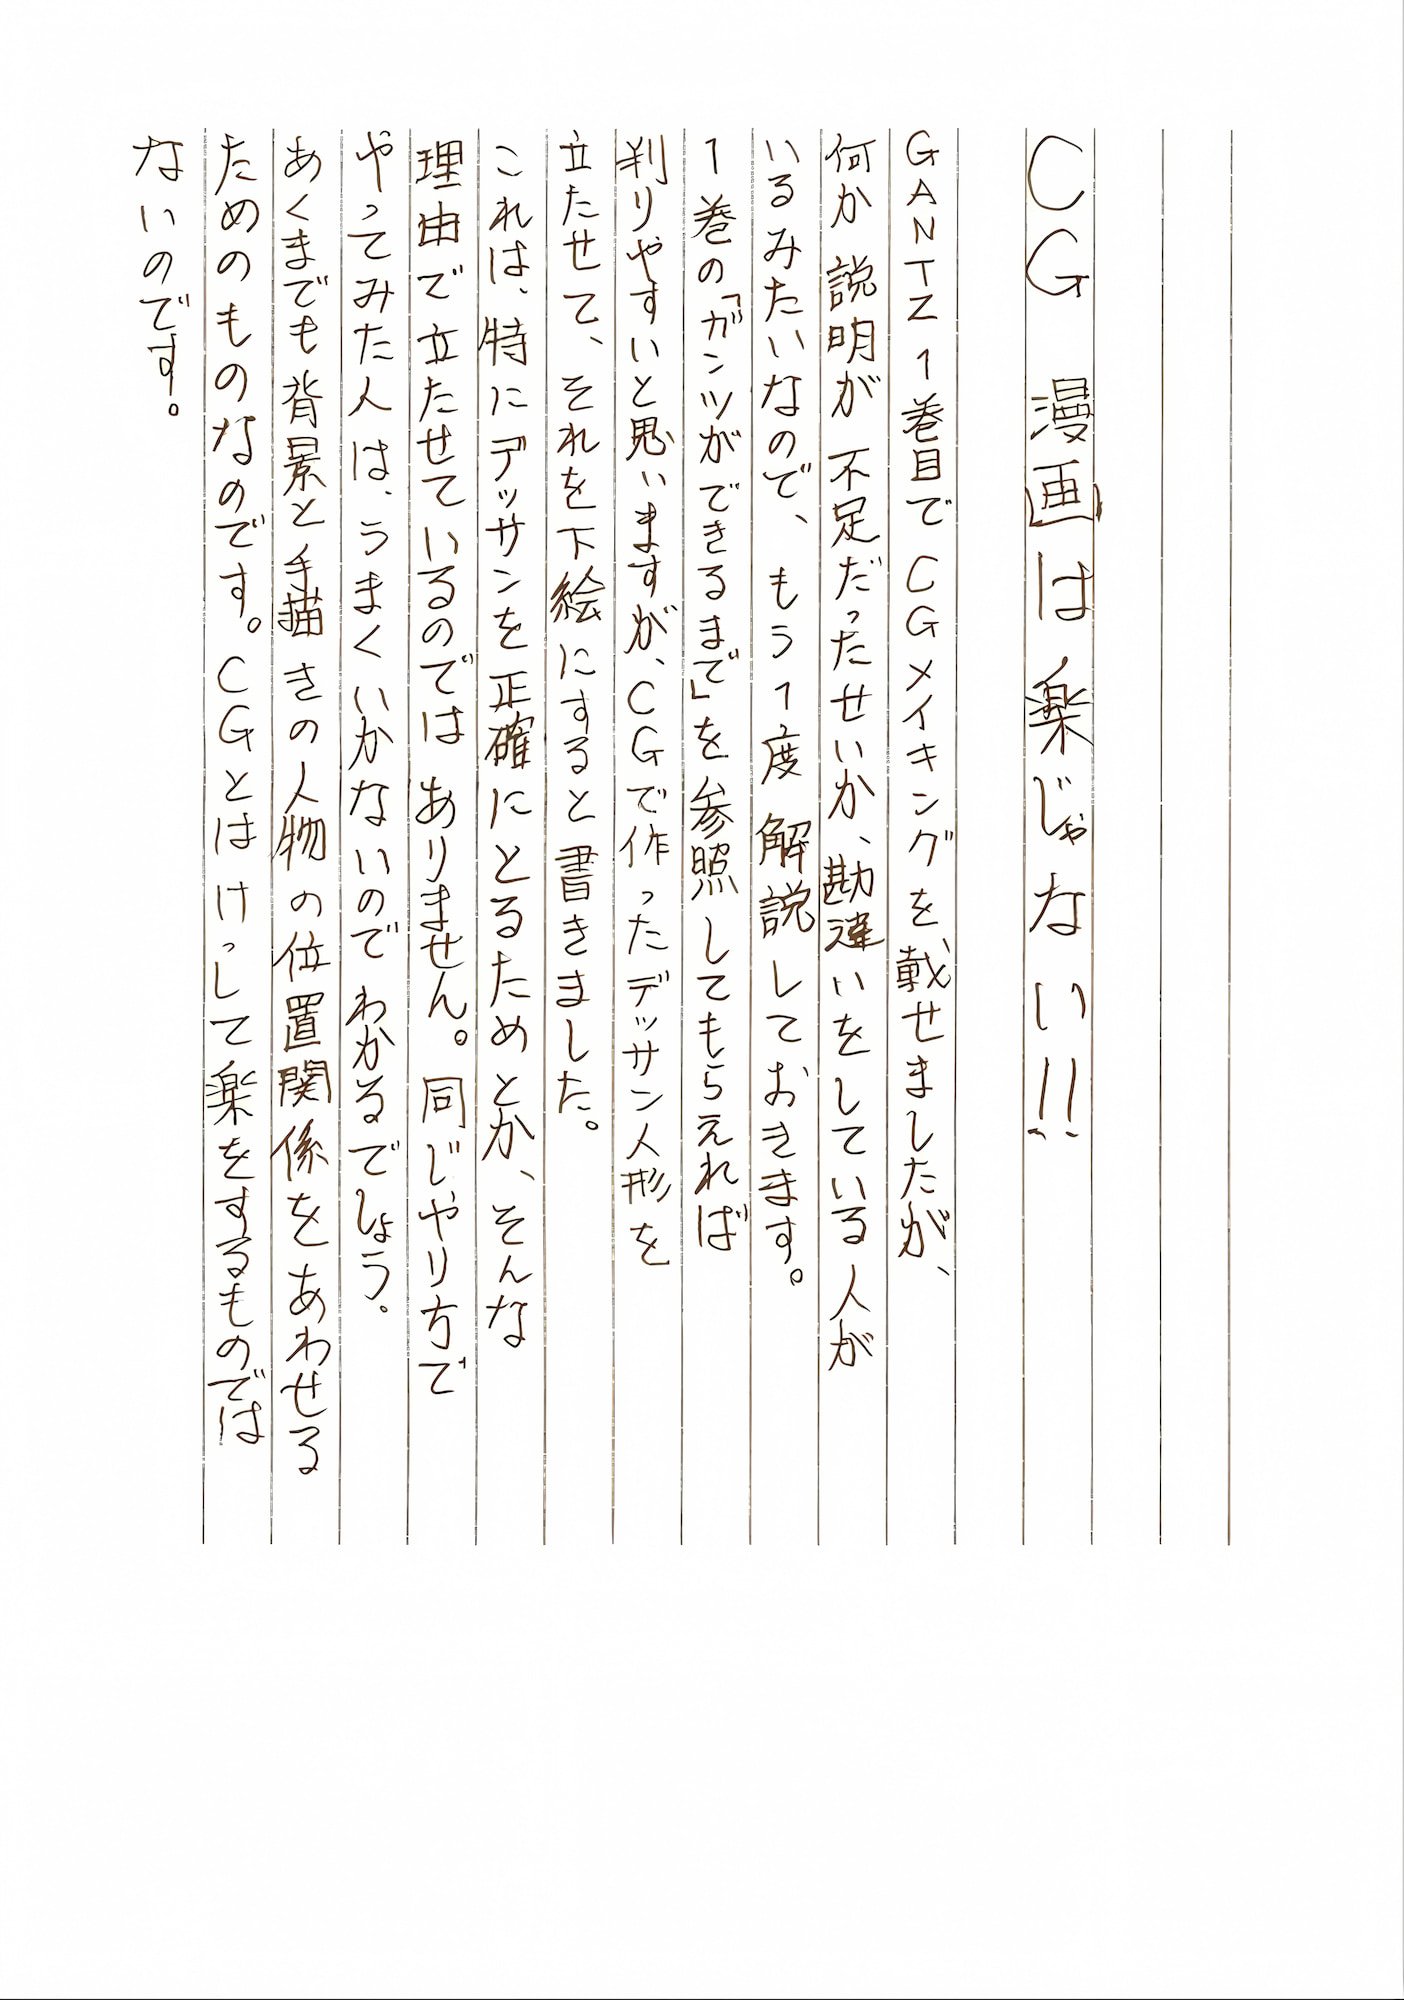 CG 漫画は楽じゃない!!
GANTZ 1巻目でCGメイキングを載せましたが、
何か説明が不足だったせいか、勘違いをしている人が
いるみたいなので、もう1度解説しておきます。
1巻の「ガンツができるまで」を参照してもらえれば
判りやすいと思いますが、CGで作ったデッサン人形を
立たせて、それを下絵にすると書きました。
これは、特にデッサンを正確にとるためとか、そんな
理由で立たせているのではありません。同じやり方で
やってみた人は、うまくいかないのでわかるでしょう。
あくまでも背景と手描きの人物の位置関係をあわせる
ためのものなのです。CGとはけっして楽をするものでは
ないのです。